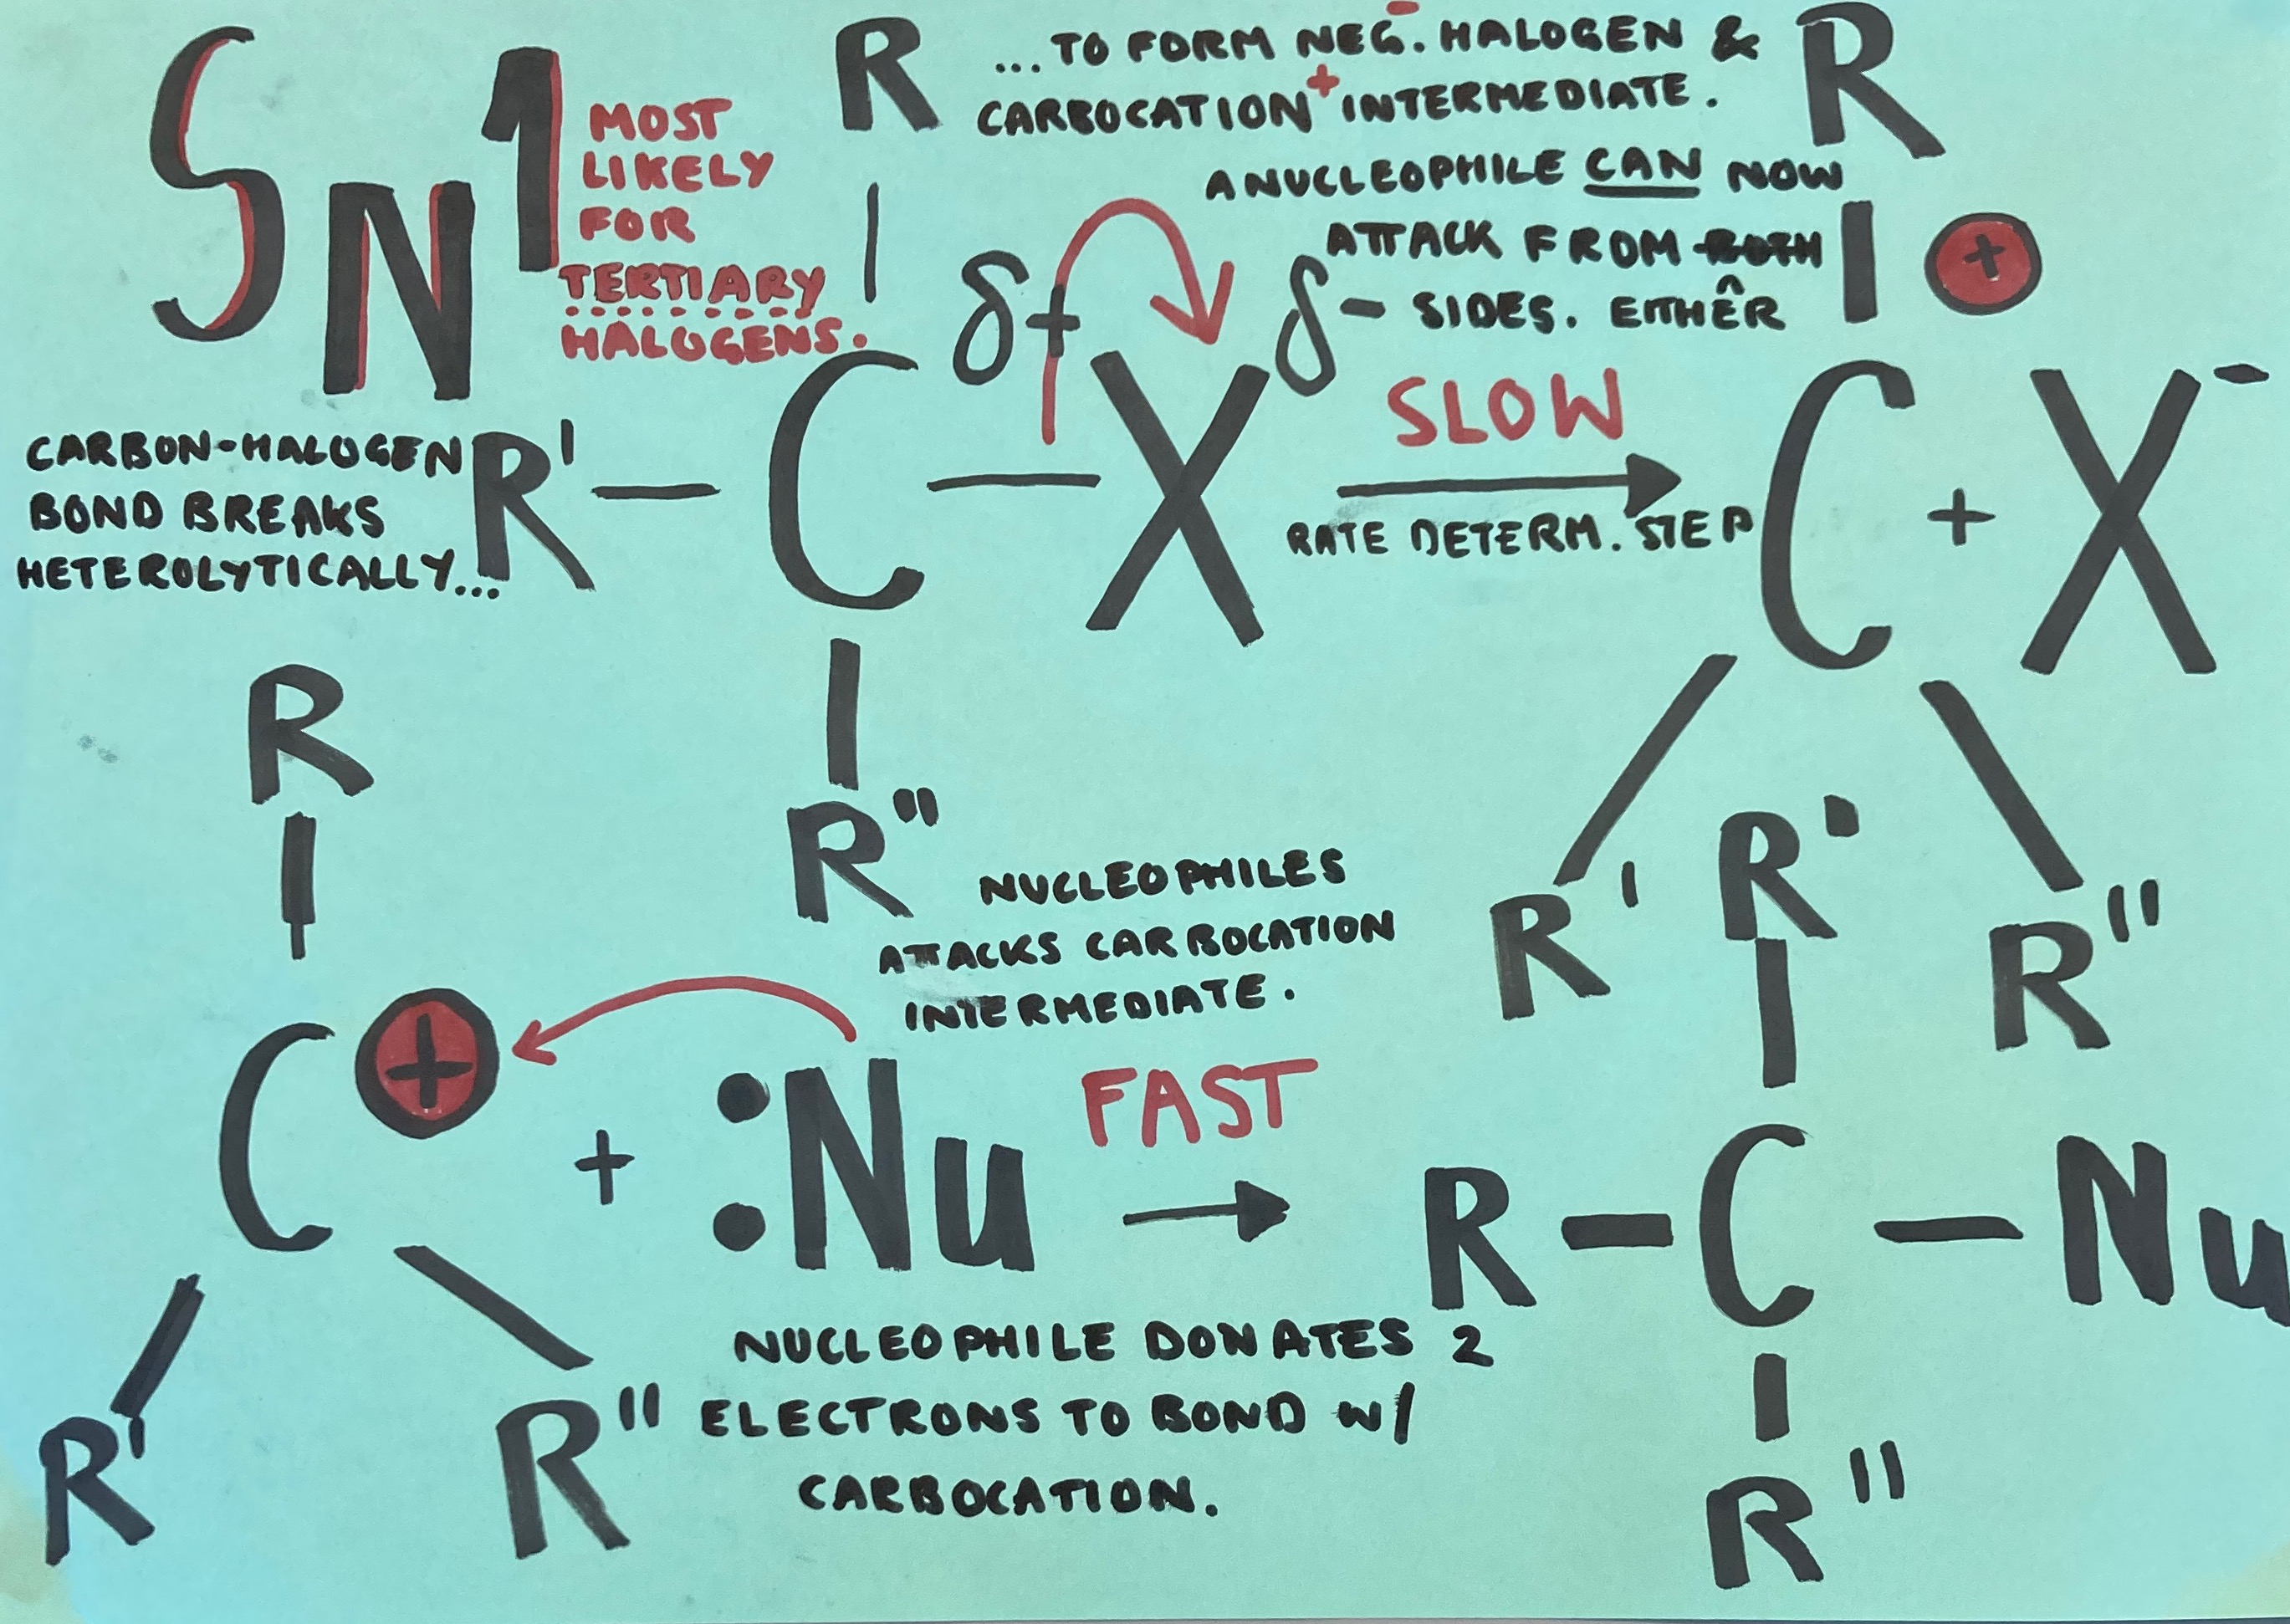 SN1
MOST
LIKELY
FOR
TERTIARY
HALOGENS.
CARBON-HALOGEN
BOND BREAKS
HETEROLYTICALLY...
R
R' — C — X
δ+
δ-
R"
...TO FORM NEG. HALOGEN &
CARBOCATION+ INTERMEDIATE.
A NUCLEOPHILE CAN NOW
ATTACK FROM BOTH
SIDES. EITHER
SLOW
RATE DETERM. STEP
R
+
C + X-
R'
R"
R
C + + :Nu
R'
R"
NUCLEOPHILES
ATTACKS CARBOCATION
INTERMEDIATE.
FAST
NUCLEOPHILE DONATES 2
ELECTRONS TO BOND W/
CARBOCATION.
R'
R — C — Nu
R"